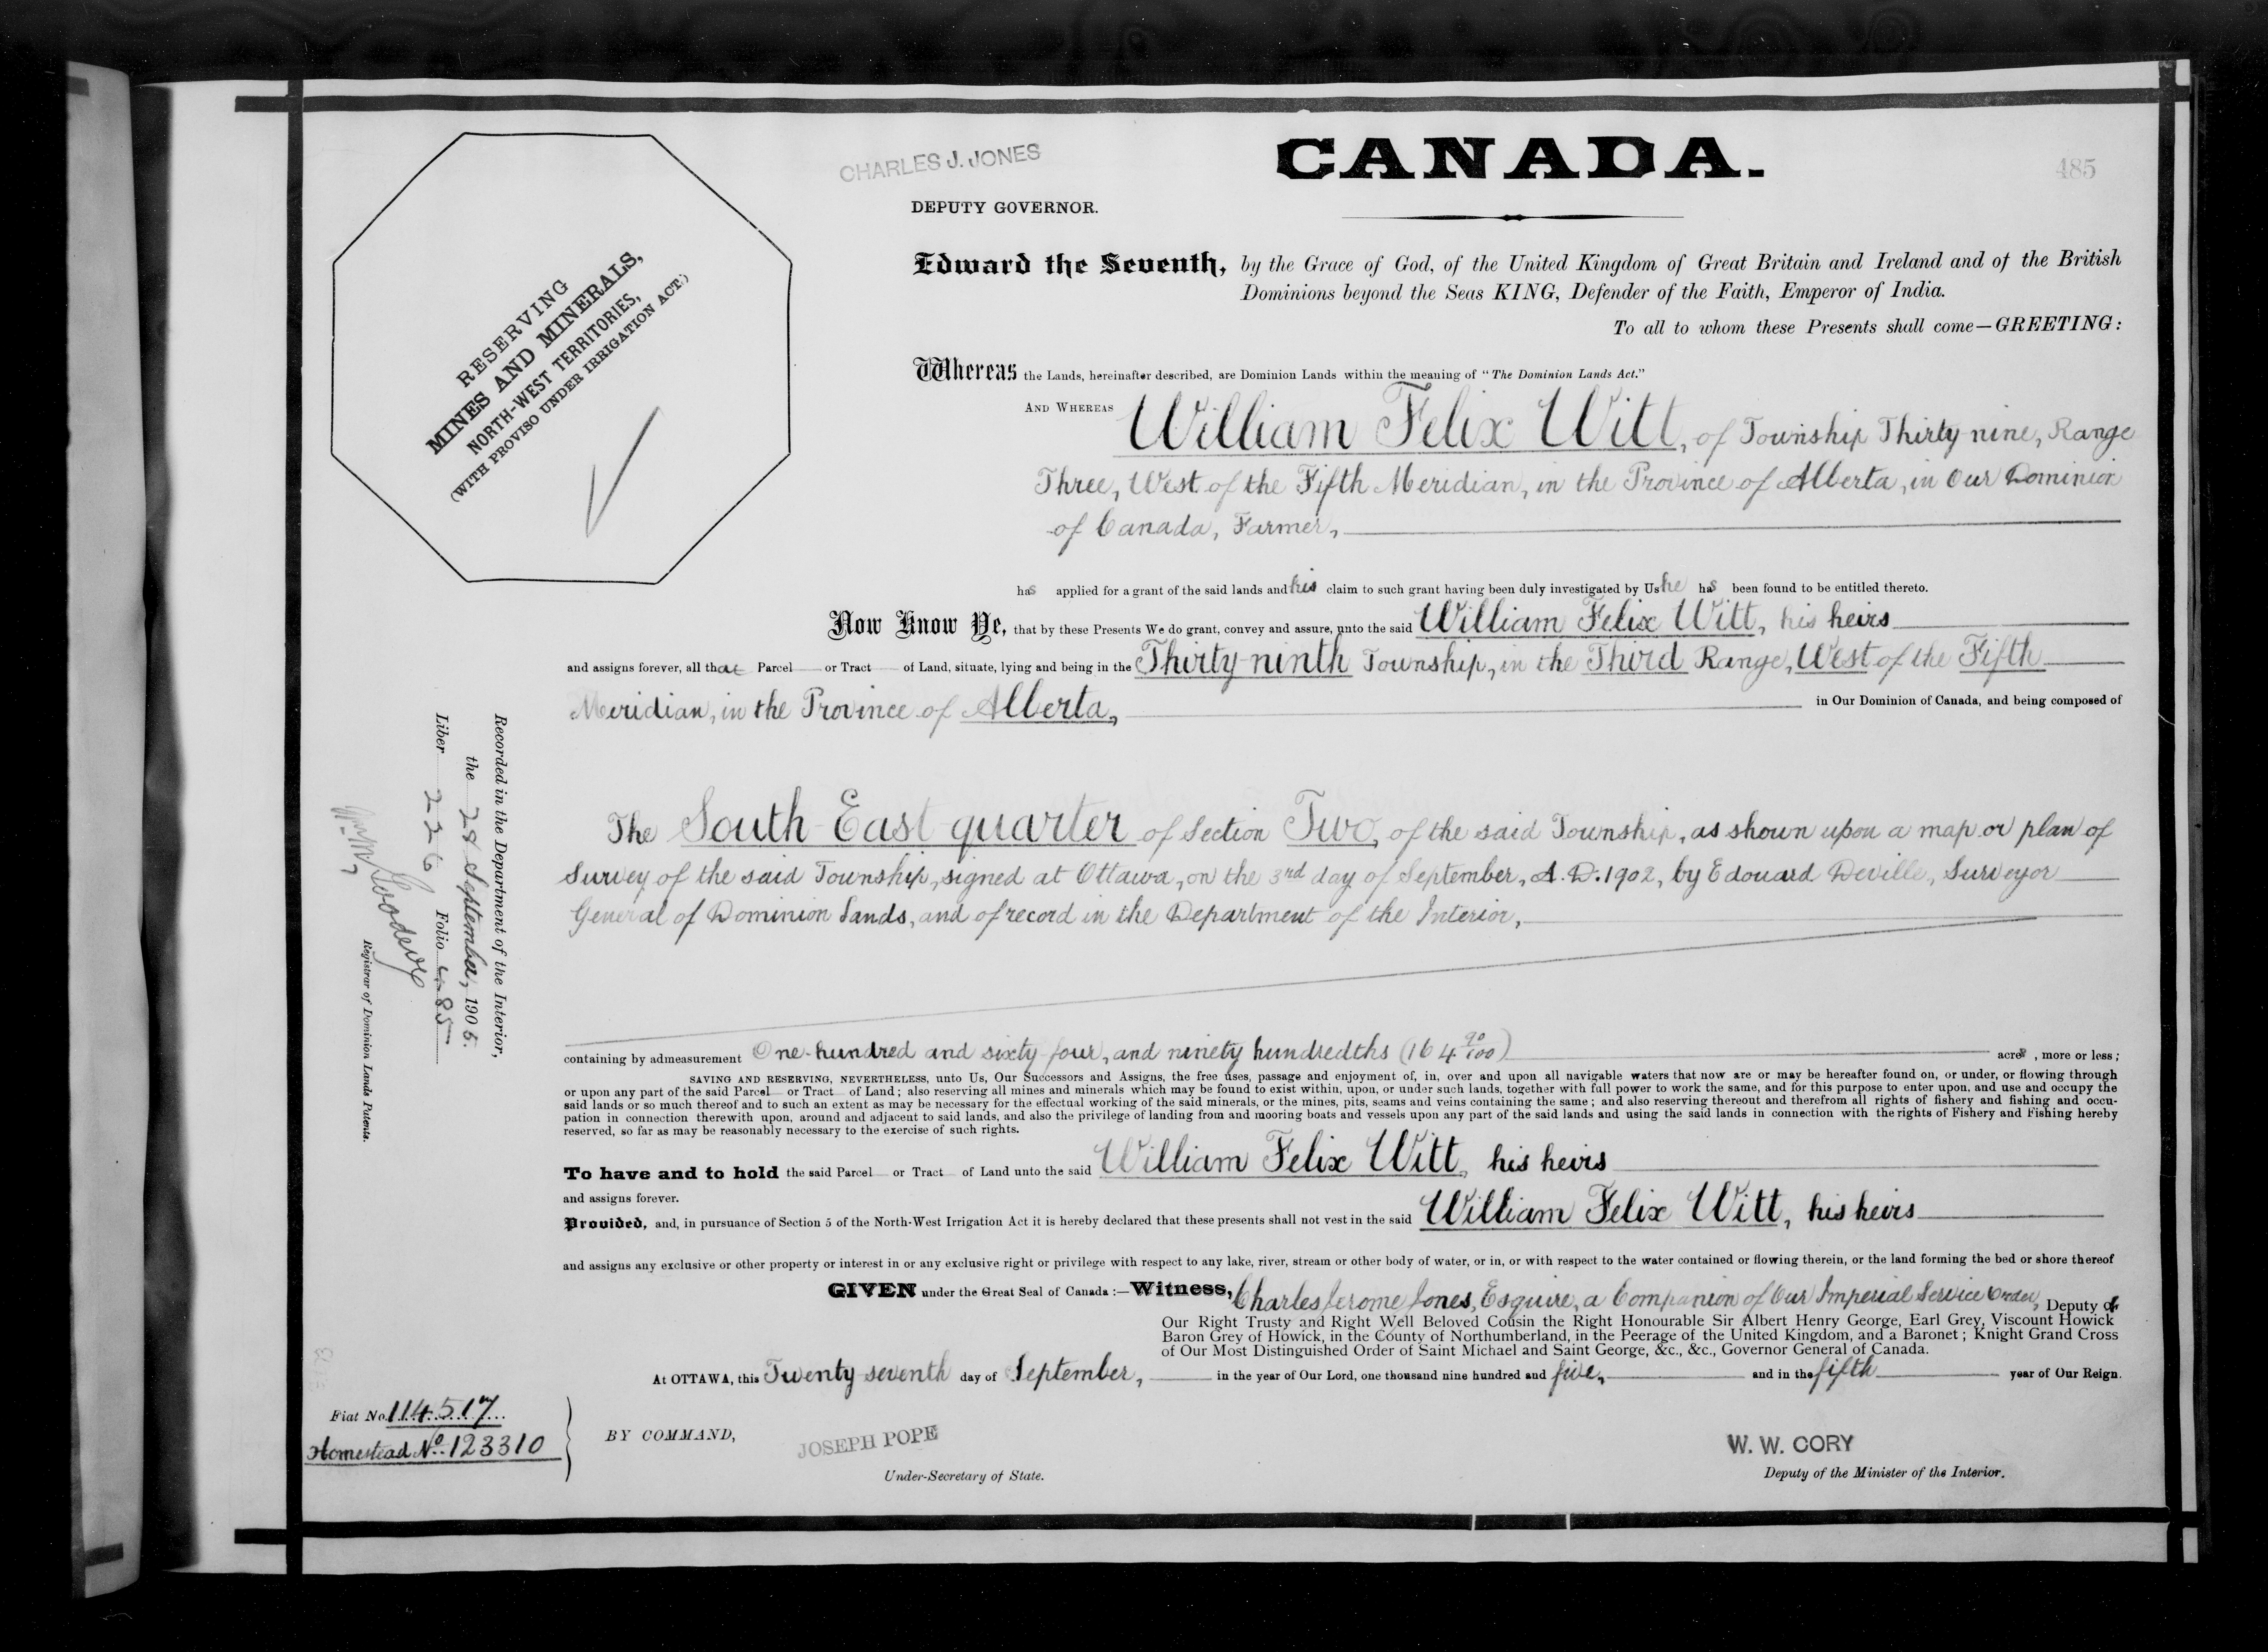 CHARLES J. JONES
CANADA.
485
DEPUTY GOVERNOR.
RESERVING
MINES AND MINERALS,
NORTH-WEST TERRITORIES,
(WITH PROVISO UNDER IRRIGATION ACT.)
Edward the Seventh, by the Grace of God, of the United Kingdom of Great Britain and Ireland and of the British
Dominions beyond the Seas KING, Defender of the Faith, Emperor of India.
To all to whom these Presents shall come—GREETING:
Whereas the Lands, hereinafter described, are Dominion Lands within the meaning of "The Dominion Lands Act."
AND WHEREAS William Felix Witt, of Township Thirty-nine, Range
Three, West of the Fifth Meridian, in the Province of Alberta, in Our Dominion
of Canada, Farmer,
has applied for a grant of the said lands and his claim to such grant having been duly investigated by Us he has been found to be entitled thereto.
Now Know Ye, that by these Presents We do grant, convey and assure, unto the said William Felix Witt, his heirs
and assigns forever, all that Parcel or Tract of Land, situate, lying and being in the Thirty-ninth Township, in the Third Range, West of the Fifth
Meridian, in the Province of Alberta, in Our Dominion of Canada, and being composed of
The South East quarter of Section Two, of the said Township, as shown upon a map or plan of
Survey of the said Township, signed at Ottawa, on the 3rd day of September, A.D. 1902, by Edouard Deville, Surveyor
General of Dominion Lands, and of record in the Department of the Interior,
containing by admeasurement One hundred and sixty four, and ninety hundredths (164 90/100) acres, more or less;
SAVING AND RESERVING, NEVERTHELESS, unto Us, Our Successors and Assigns, the free uses, passage and enjoyment of, in, over and upon all navigable waters that now are or may be hereafter found on, or under, or flowing through
or upon any part of the said Parcel or Tract of Land; also reserving all mines and minerals which may be found to exist within, upon, or under such lands, together with full power to work the same, and for this purpose to enter upon, and use and occupy the
said lands or so much thereof and to such an extent as may be necessary for the effectual working of the said minerals, or the mines, pits, seams and veins containing the same; and also reserving thereout and therefrom all rights of fishery and fishing and occu-
pation in connection therewith upon, around and adjacent to said lands, and also the privilege of landing from and mooring boats and vessels upon any part of the said lands and using the said lands in connection with the rights of Fishery and Fishing hereby
reserved, so far as may be reasonably necessary to the exercise of such rights.
To have and to hold the said Parcel or Tract of Land unto the said William Felix Witt, his heirs
and assigns forever.
Provided, and, in pursuance of Section 5 of the North-West Irrigation Act it is hereby declared that these presents shall not vest in the said William Felix Witt, his heirs
and assigns any exclusive or other property or interest in or any exclusive right or privilege with respect to any lake, river, stream or other body of water, or in, or with respect to the water contained or flowing therein, or the land forming the bed or shore thereof
GIVEN under the Great Seal of Canada:—Witness, Charles Jerome Jones, Esquire, a Companion of Our Imperial Service Order, Deputy of
Our Right Trusty and Right Well Beloved Cousin the Right Honourable Sir Albert Henry George, Earl Grey, Viscount Howick
Baron Grey of Howick, in the County of Northumberland, in the Peerage of the United Kingdom, and a Baronet; Knight Grand Cross
of Our Most Distinguished Order of Saint Michael and Saint George, &c., &c., Governor General of Canada.
At OTTAWA, this Twenty seventh day of September, in the year of Our Lord, one thousand nine hundred and five, and in the fifth year of Our Reign.
BY COMMAND,
JOSEPH POPE
Under-Secretary of State.
W. W. CORY
Deputy of the Minister of the Interior.
Fiat No. 114517
Homestead No. 123310
Recorded in the Department of the Interior,
the 28 September, 1905.
Liber 226 Folio 485
Registrar of Dominion Lands Patents.